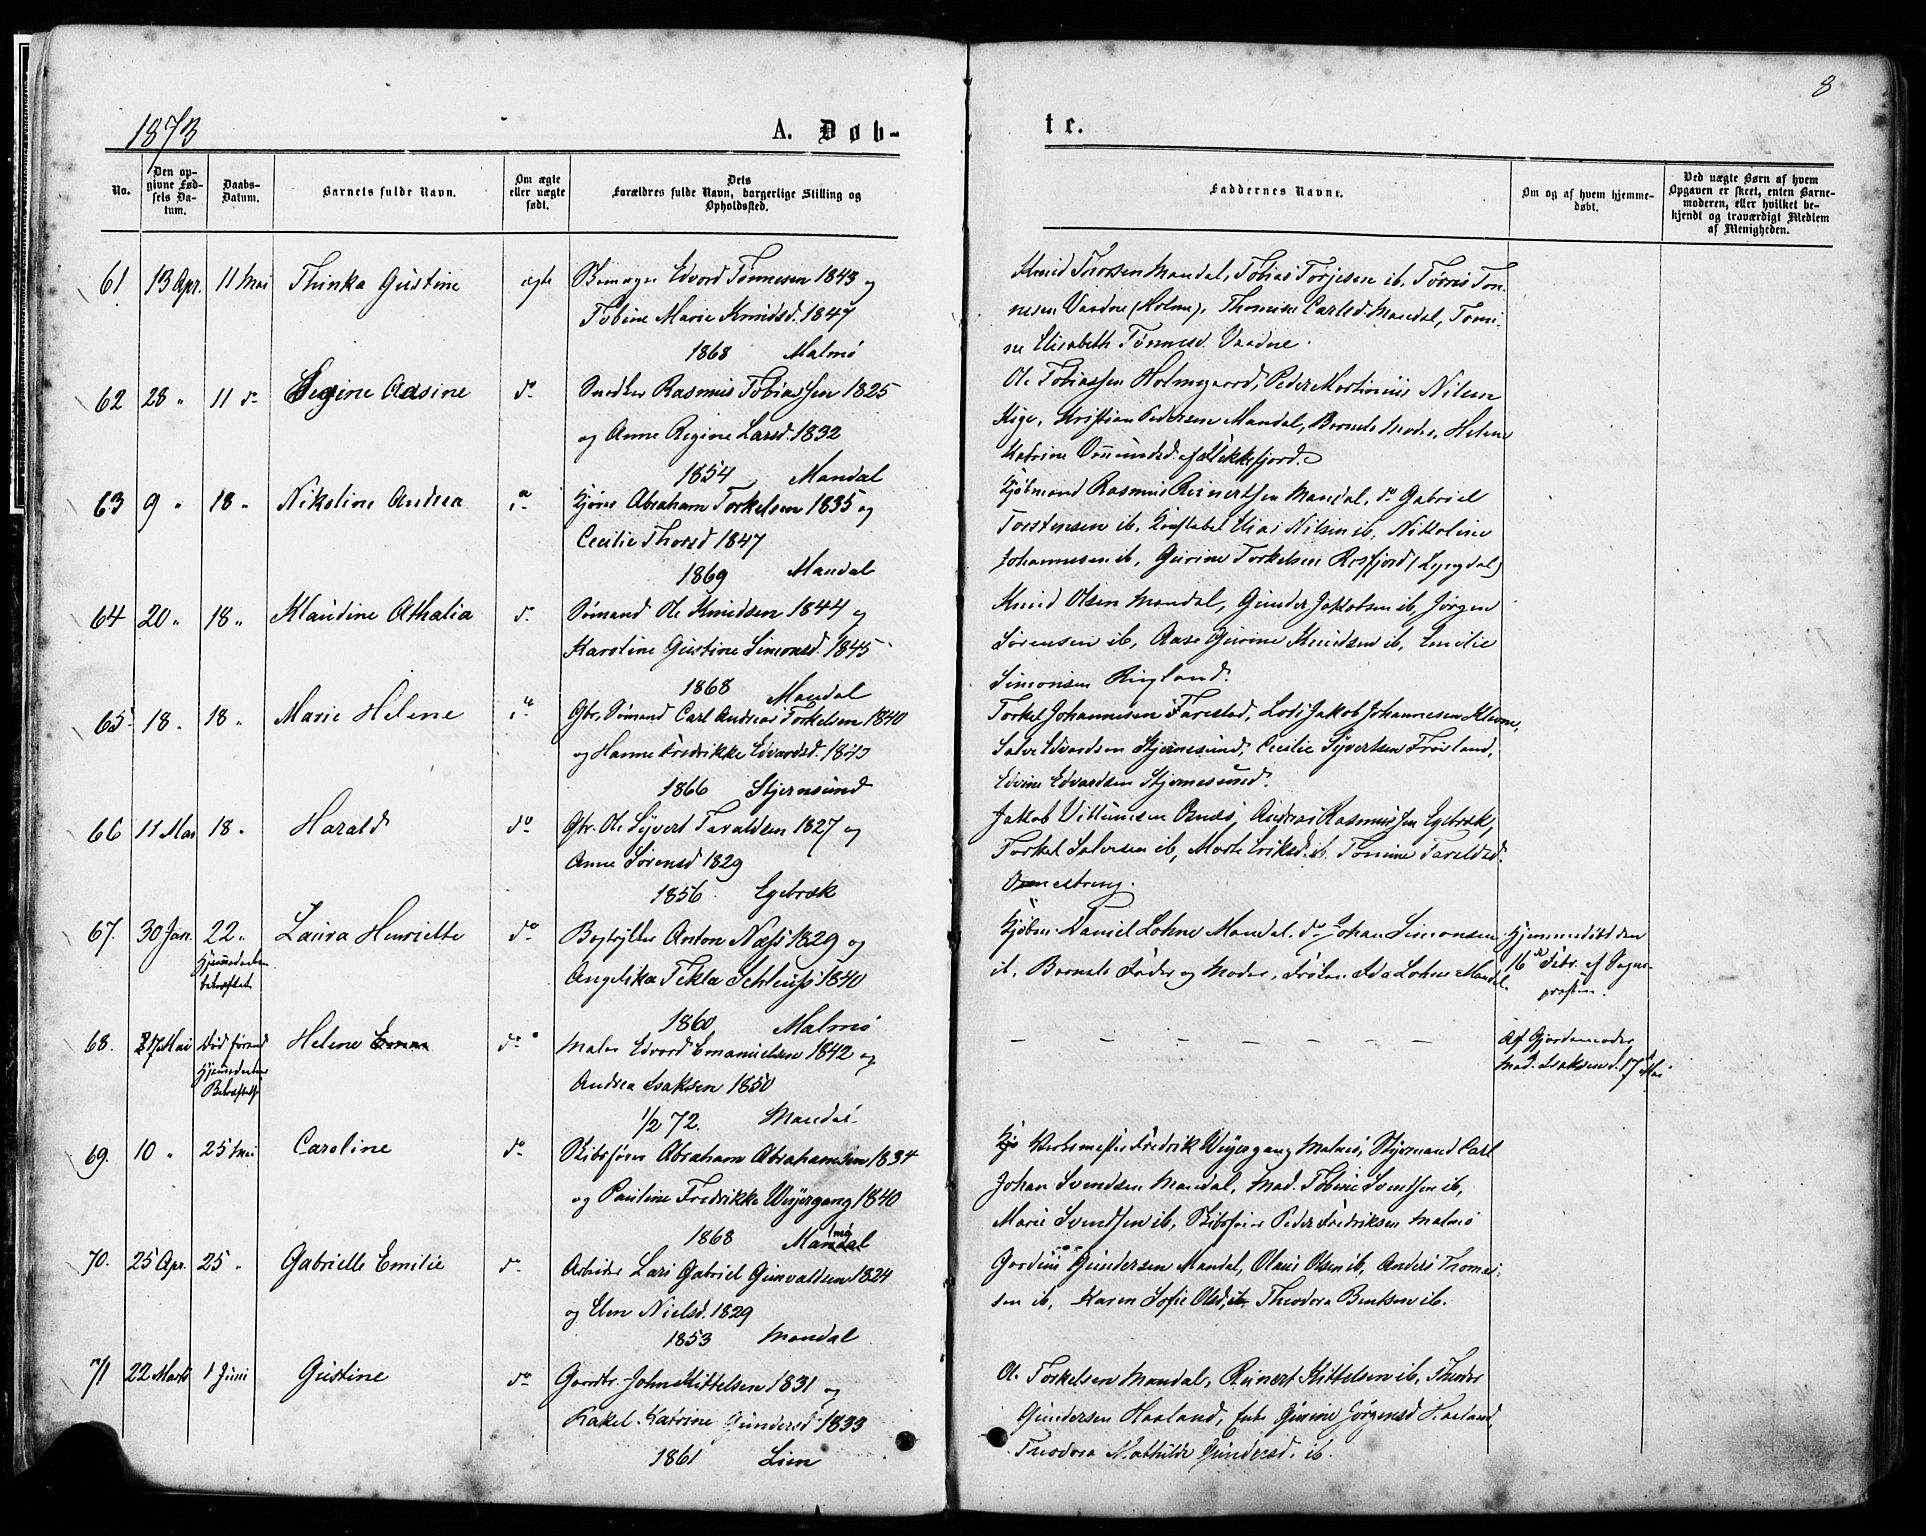 8
1873
A. Døb-
te.
No.
Den op-
givne Fød-
sels Da-
tum.
Daabs-
Datum.
Barnets fulde Navn.
Om ægte
eller uægte
født.
Dets
Forældres fulde Navn, borgerlige Stilling og
Opholdssted.
Faddernes Navne.
Om og af hvem hjemme-
døbt.
Ved uægte Børn af hvem
Opgaven er skeet, enten Barne-
moderen, eller hvilket be-
kjendt og troværdigt Medlem
af Menigheden.
61 13 Apr. 11 Mai Thinka Gustine ægte Edvard Tønnesen 1843 og
Tobine Marie Knudsd. 1847
1868 Malmø
Knud Thorsen Mandal, Tobias Torjesen ib, Tørris Tøn-
nesen Vaadne (Holme), Thomine Carlsd. Mandal, Tomi-
ne Elisabeth Tønnesd. Vaadne.
62 28 " 11 do Segine Aasine do Snedker Rasmus Tobiassen 1825
og Anne Regine Larsd. 1832
1854 Mandal
Ol. Tobiassen Holmegaard, Peder Martinius Nilsen
Kige, Kristian Pedersen Mandal, Barnets Moder, Helene
Katrine af Flekkefjord.
63 9 " 18 " Nikoline Andrea Abraham Torkelsen 1835 og
Cecilie Thorsd 1847
1869 Mandal
Kjøbmand Rasmus Reinertsen Mandal, do Gabriel
Torstensen ib, Konstabel Elias Nilsen ib, Nikoline
Johannesen ib, Gurine Torkelsen Rosfjord (Lyngdal)
64 20 " 18 " Klaudine Athalia do Sømand Ole Knudsen 1844 og
Karoline Gustine Simonsd. 1845
1868 Mandal
Knud Olsen Mandal, Gunder Jakobsen ib, Jørgen
Sørensen ib, Aase Gurine Knudsen ib, Emilie
Simonsen Ringland.
65 18 " 18 " Marie Helene Gbr. Sømand Carl Andreas Torkelsen 1840
og Hanne Fredrikke Edvardsd.
1866 Stjernsund
Torkel Johannesen Farestad, Lods Jakob Johannesen Kleven,
Salve Edvardsen Stjernesund, Cecilie Syvertsen Frøisland,
Edvine Edvardsen Stjernesund.
66 11 Mai 18 " Harald do Gbr. Ole Syvert Taraldsen 1827 og
Anne Sørensd 1829
1856 Egebræk
Jakob Villumsen Osnes, Andreas Rasmussen Egebræk,
Torkel Salvesen ib, Marte Eriksd. ib, Tomine Taraldsd.
Omestreng.
67. 30 Jan. 22 " Laura Henriette do Bogtrykker Anton Næss 1829 og
Hjemmedaaben
bekræftet
Angelika Tekla Schleuss 1840
1860 Malmø
Kjøbm. Daniel Lohne Mandal, do Johan Simonsen
ib, Barnets Fader og Moder, Frøken Ida Lohne Mandal.
Hjemmedøbt den
16 de Febr. af Sogne-
presten.
68. 17 Mai Død førend Helene Emma do Maler Edvard Emanuelsen 1842 og
Hjemmedaaben
Bekræftelse
Andrea Isaksen 1850
1/2 72. Mandal
– – – – – – –
Af Gjordemoder
Mad. Isaksen d. 17 Mai
69. 10 " 25 Mai Caroline do Skibsfører Abraham Abrahamsen 1834
og Pauline Fredrikke Weyergang 1840
1868 Malmø
Værksmester Fredrik Weyergang Malmø, Styrmand Carl
Johan Svendsen Mandal, Mad. Tobine Svendsen ib,
Marie Svendsen ib, Skibsfører Peder Fredriksen Malmø
70. 25 Apr. 25 " Gabrielle Emilie do Arbeider Lars Gabriel Gunvaldsen 1824
og Elen Nielsd. 1829
1853 Mandal
Gordius Gundersen Mandal, Olaus Olsen ib, Anders Thomas-
sen ib, Karen Sofie Olsd. ib, Theodora Bentsen ib.
71 22 Marts 1 Juni Gustine do Gaardbr. John Kittelsen 1831 og
Rakel Katrine Gundersd. 1833
1861 Lien
Ol. Torkelsen Mandal, Reinert Kittelsen ib, Theodor
Gundersen Haaland, Enke Gurine Jørgensd Haaland,
Theodora Mathilde Gundersd. ib.